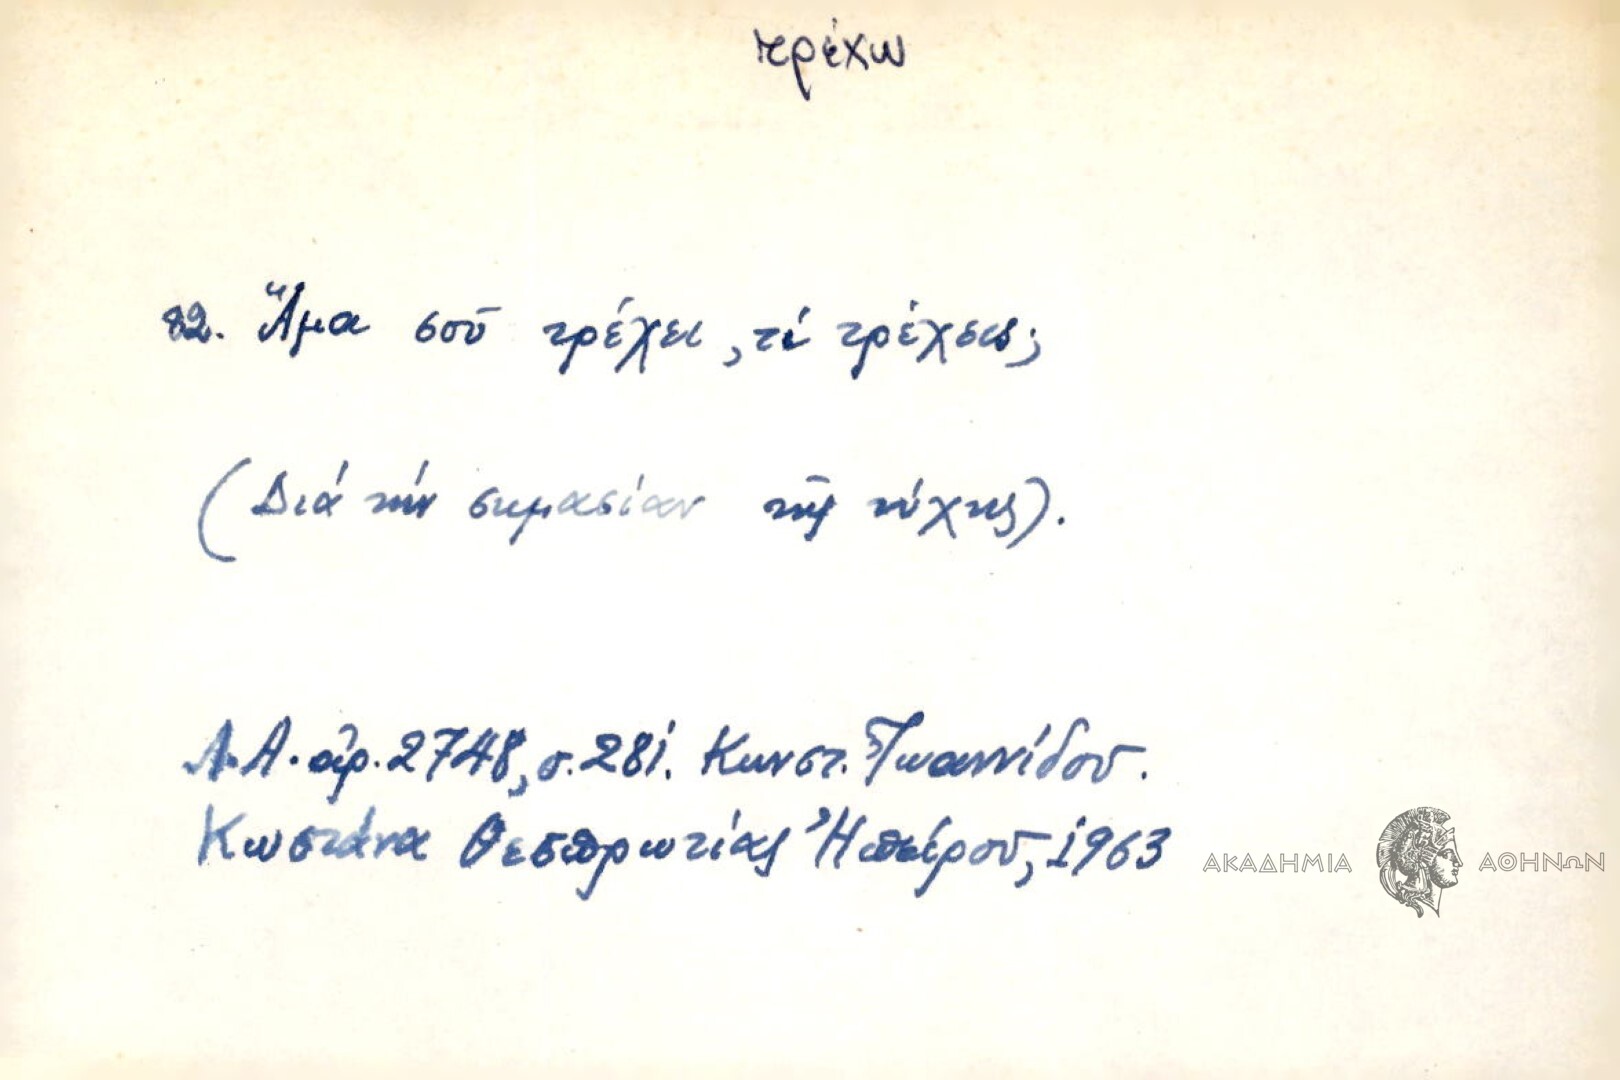 τρέχω
82. Ἄμα σοῦ τρέχει, τί τρέχεις;
(Διά τήν σημασίαν τῆς τύχης).
Λ.Α. ἀρ. 2748, σ. 281. Κωνστ. Ἰωαννίδου.
Κωστάνα Θεσπρωτίας Ἠπείρου, 1963
ΑΚΑΔΗΜΙΑ ΑΘΗΝΩΝ